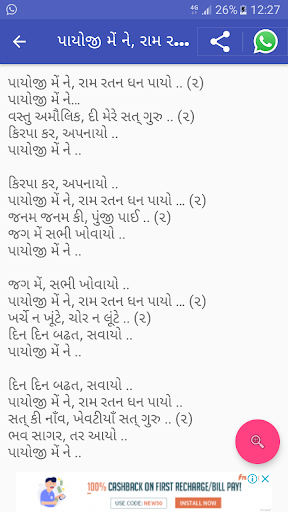 4G 52% 12:27
પાયોજી મેં ને, રામ ર...
પાયોજી મેં ને, રામ રતન ધન પાયો .. (૨)
પાયોજી મેં ને...
વસ્તુ અમૌલિક, દી મેરે સત્ ગુરુ .. (૨)
કિરપા કર, અપનાયો ..
પાયોજી મેં ને ..
કિરપા કર, અપનાયો ..
પાયોજી મેં ને, રામ રતન ધન પાયો ... (૨)
જનમ જનમ કી, પુંજી પાઈ .. (૨)
જગ મેં સભી ખોવાયો ..
પાયોજી મેં ને ..
જગ મેં, સભી ખોવાયો ..
પાયોજી મેં ને, રામ રતન ધન પાયો ... (૨)
ખર્ચે ન ખૂંટે, ચોર ન લૂંટે .. (૨)
દિન દિન બઢત, સવાયો ..
પાયોજી મેં ને ..
દિન દિન બઢત, સવાયો ..
પાયોજી મેં ને, રામ રતન ધન પાયો ..
સત્ કી નાઁવ, ખેવટીયાઁ સત્ ગુરુ .. (૨)
ભવ સાગર, તર આયો ..
પાયોજી મેં ને ..
100% CASHBACK ON FIRST RECHARGE/BILL PAY!
USE CODE: NEW50
INSTALL NOW